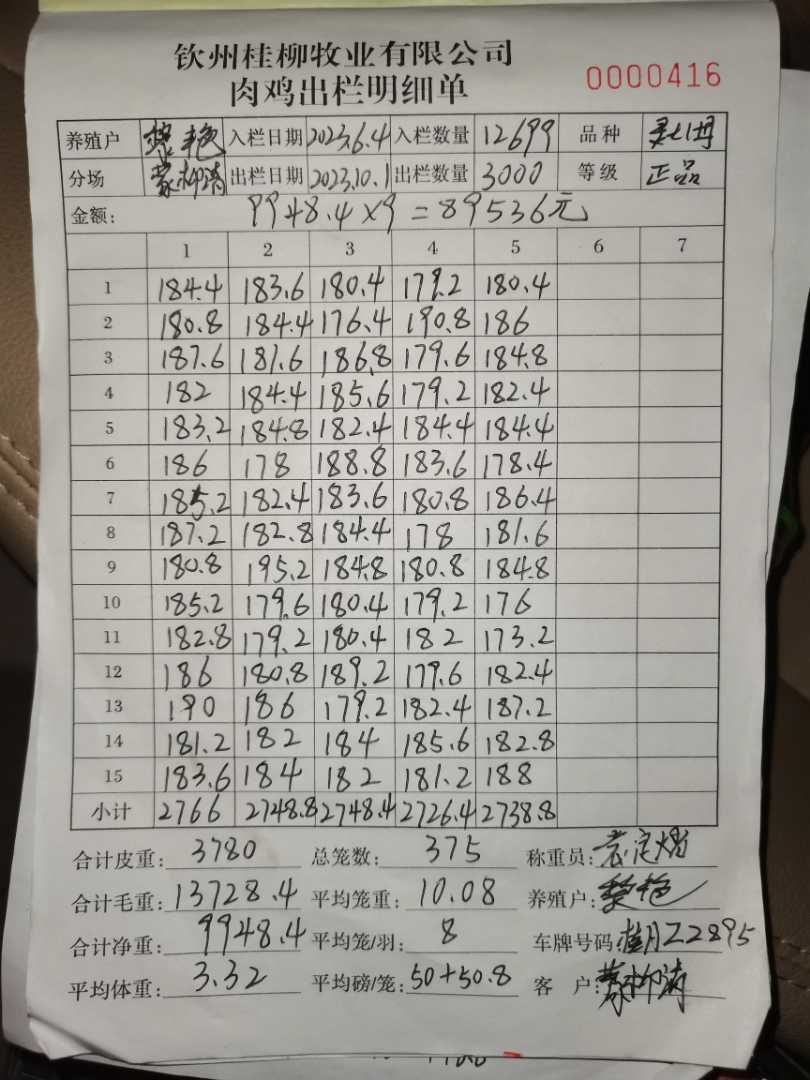 钦州桂柳牧业有限公司
肉鸡出栏明细单 0000416
养殖户 黎艳 入栏日期 2023.6.4 入栏数量 12699 品种
分场 蒙柳清 出栏日期 2023.10.1 出栏数量 3000 等级 正品
金额: 9948.4×9=89536元
1 2 3 4 5 6 7
1 184.4 183.6 180.4 179.2 180.4
2 180.8 184.4 176.4 190.8 186
3 187.6 181.6 186.8 179.6 184.8
4 182 184.4 185.6 179.2 182.4
5 183.2 184.8 182.4 184.4 184.4
6 186 178 188.8 183.6 178.4
7 185.2 182.4 183.6 180.8 186.4
8 187.2 182.8 184.4 178 181.6
9 180.8 195.2 184.8 180.8 184.8
10 185.2 179.6 180.4 179.2 176
11 182.8 179.2 180.4 182 173.2
12 186 180.8 189.2 179.6 182.4
13 190 186 179.2 182.4 187.2
14 181.2 182 184 185.6 182.8
15 183.6 184 182 181.2 188
小计 2766 2748.8 2748.4 2726.4 2738.8
合计皮重: 3780 总笼数: 375 称重员:
合计毛重: 13728.4 平均笼重: 10.08 养殖户: 黎艳
合计净重: 9948.4 平均笼/羽: 8 车牌号码 桂 Z2895
平均体重: 3.32 平均磅/笼: 50+50.8 客户: